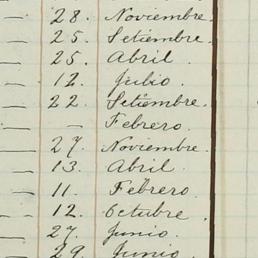 28. Noviembre.
25. Setiembre.
25. Abril
12. Julio
22. Setiembre.
— Febrero.
27. Noviembre.
13. Abril.
11. Febrero.
12. Octubre.
27. Junio.
29. Junio.